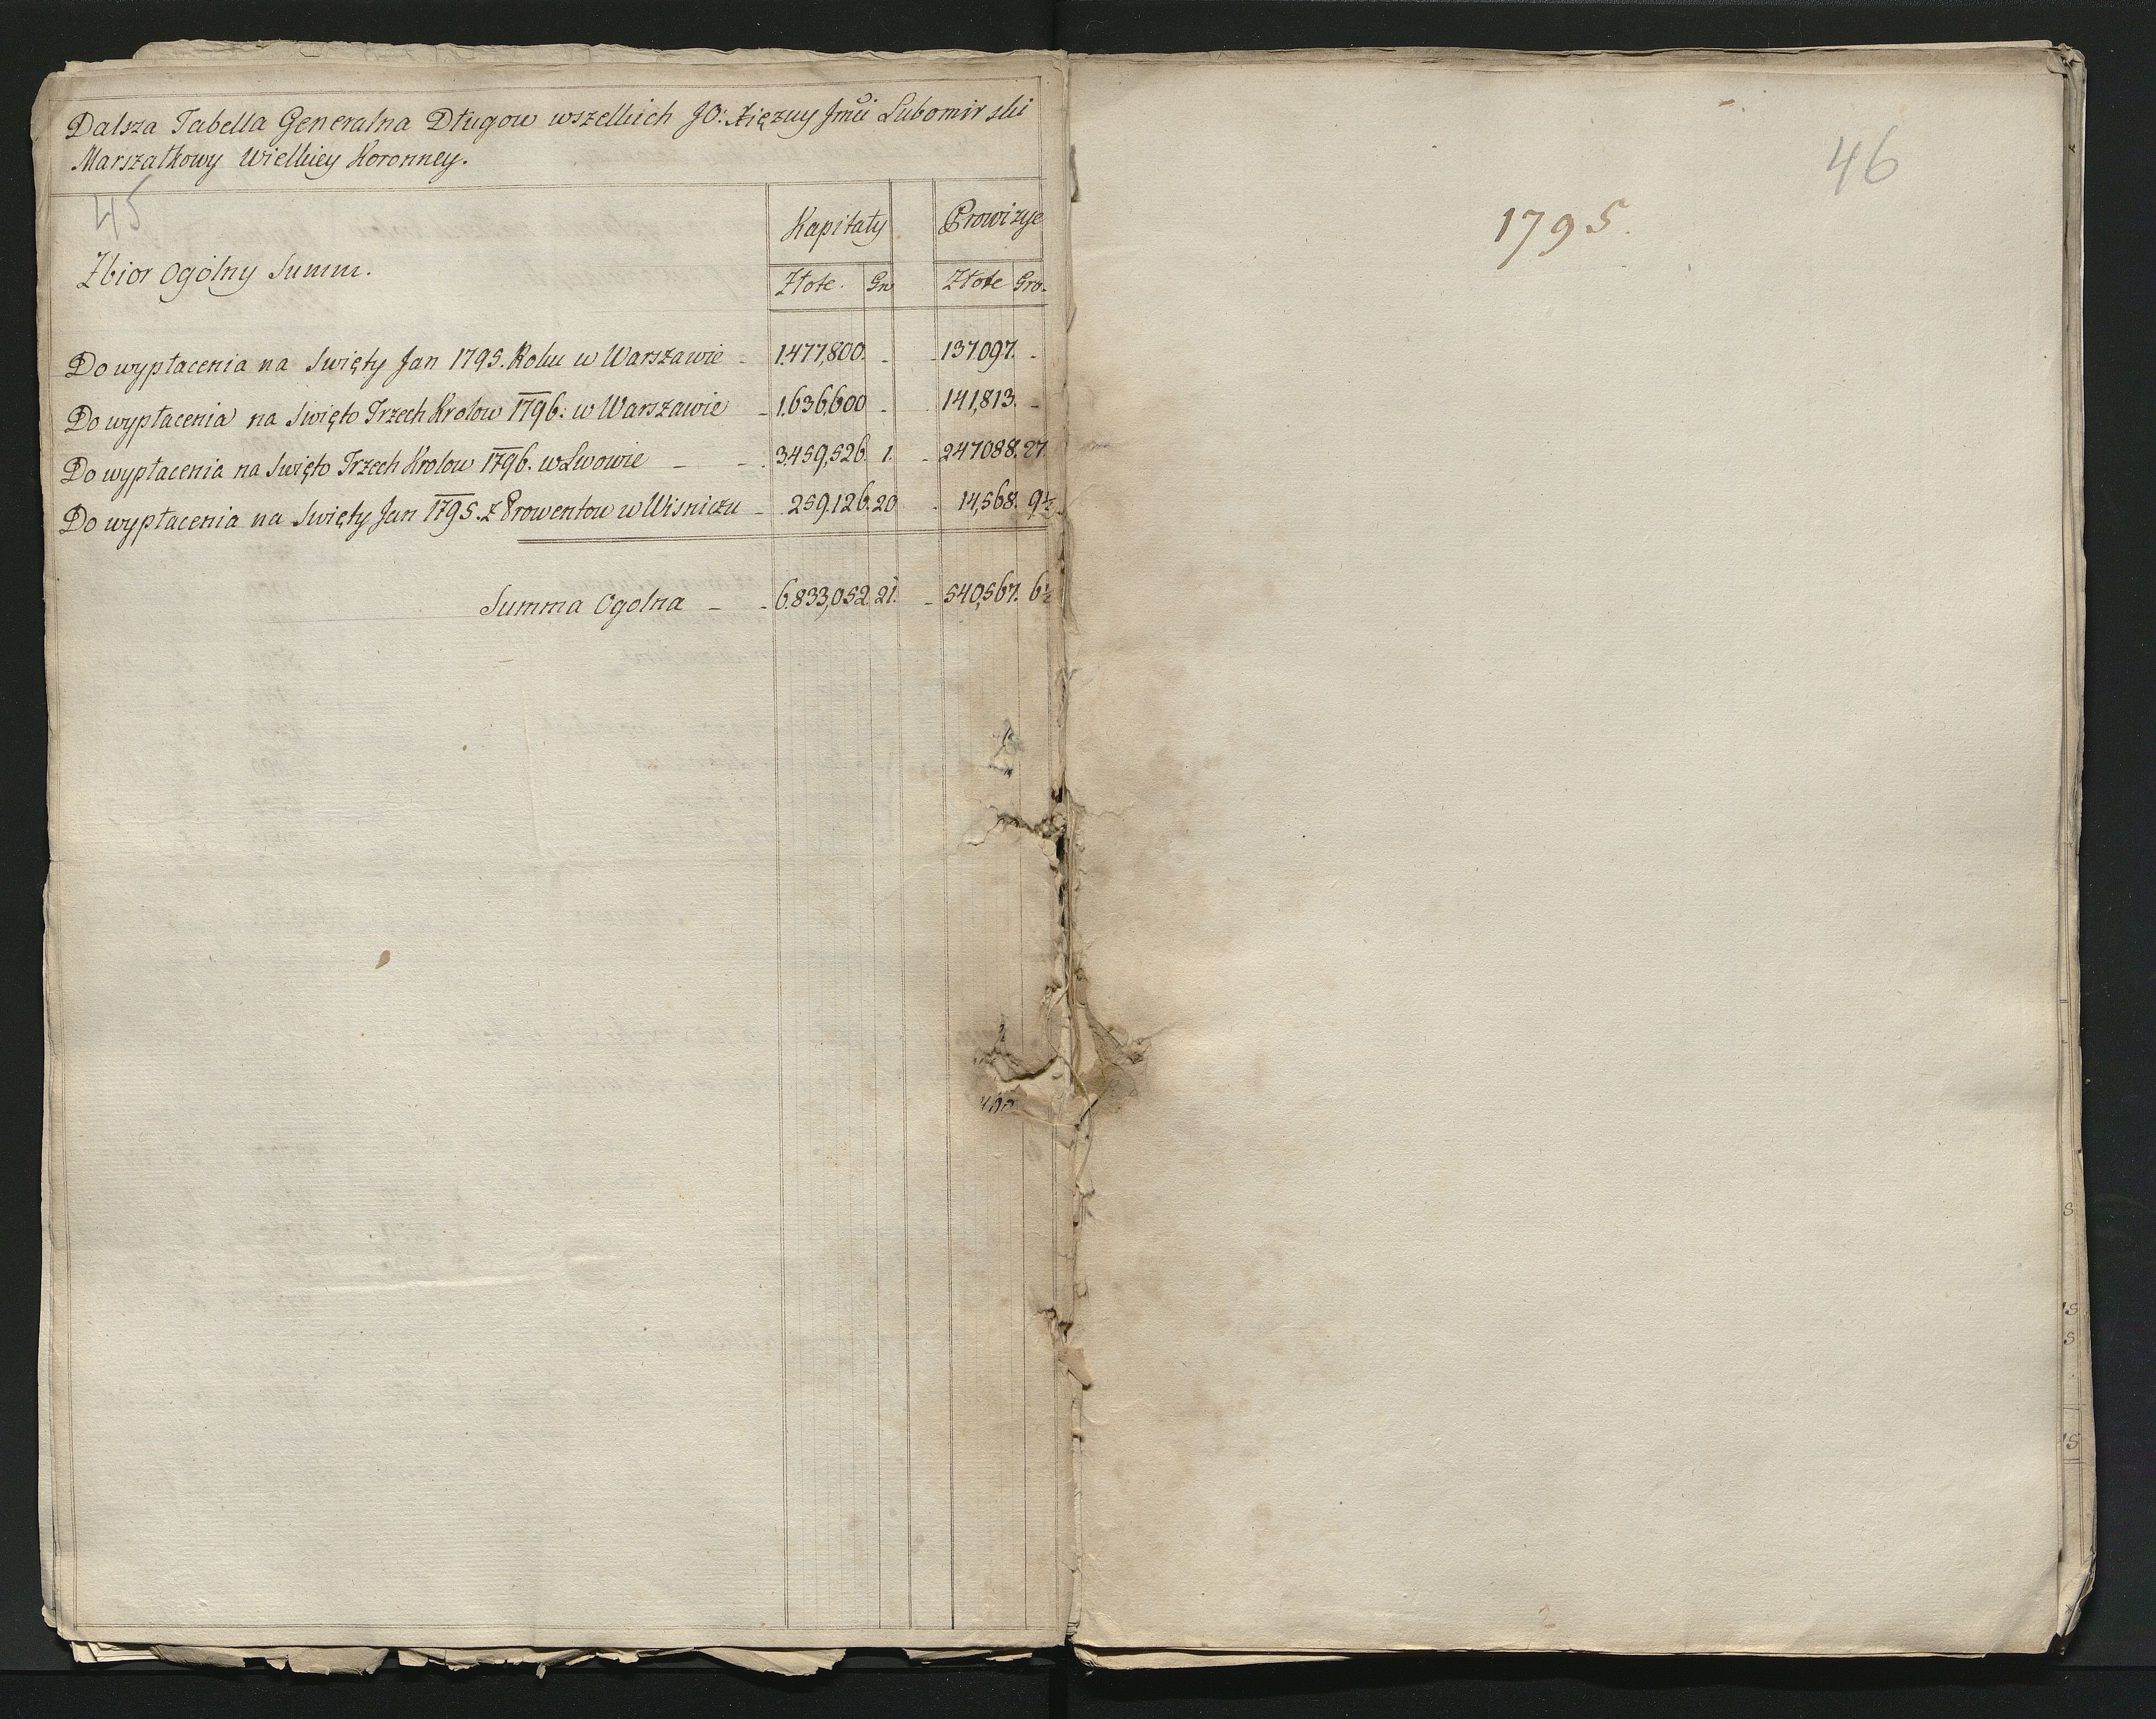 Dalsza Tabella Generalna Długow wszelkich JO: Xięzny Jmci Lubomirski
Marszałkowy Wielkiey Koronney.
45
Zbior Ogolny Summ.
Kapitały Prowizye
Złote. Gr Złote Gro.
Do wypłacenia na Swięty Jan 1795. Roku w Warszawie - 1.477,800. - - 137097. -
Do wypłacenia na Swięto Trzech Krolow 1796: w Warszawie - 1.636,600 - - 141,813. -
Do wypłacenia na Swięto Trzech Krolow 1796. w Lwowie - - 3.459,526. 1. - 247088. 27.
Do wypłacenia na Swięty Jan 1795. z Prowentow w Wisniczu - 259.126. 20 - 14,568. 9½
Summa Ogolna - - 6.833,052. 21. - 540,567. 6½
46
1795.